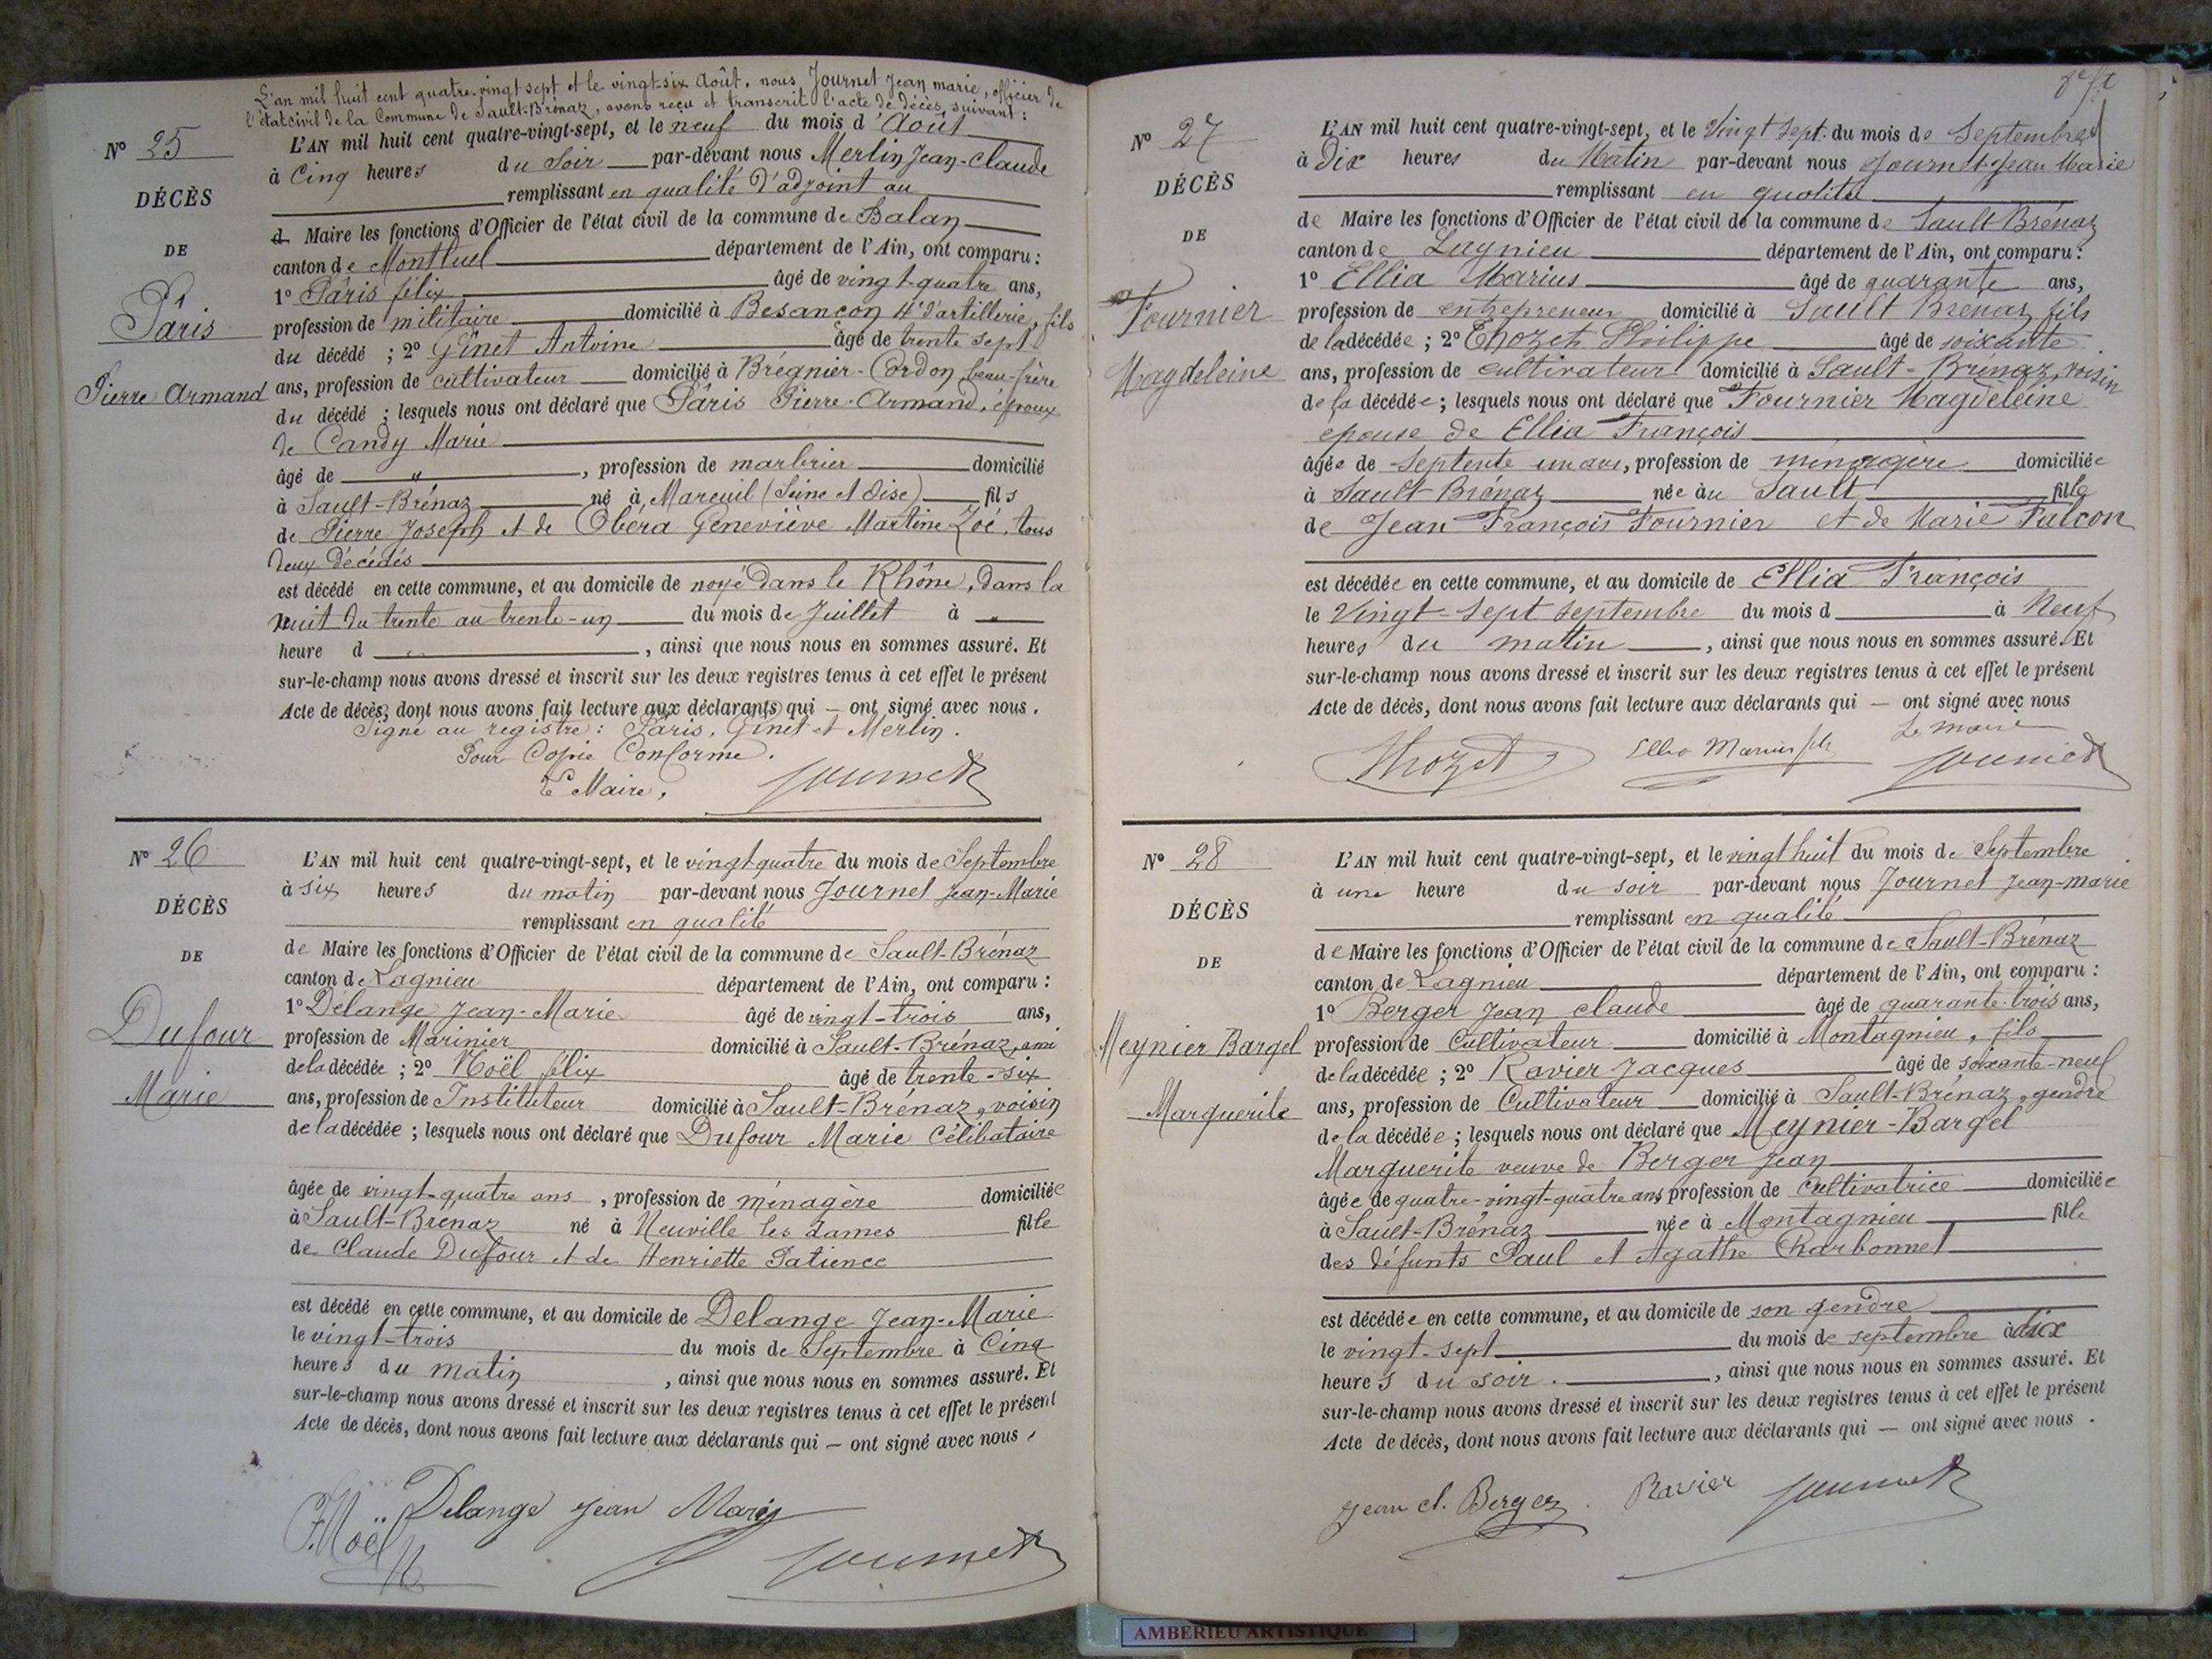 L'an mil huit cent quatre-vingt sept et le vingt-six Août, nous Journet Jean marie, officier de
l'état civil de la Commune de Sault-Brénaz, avons reçu et transcrit l'acte de décès suivant :
N° 25
DÉCÈS
DE
Pâris
Pierre Armand
L'AN mil huit cent quatre-vingt-sept, et le neuf du mois d'Août
à Cinq heures du Soir par-devant nous Merlin Jean-Claude
remplissant en qualité d'adjoint au
d Maire les fonctions d'Officier de l'état civil de la commune de Balan
canton de Montluel département de l'Ain, ont comparu :
1° Pâris félix âgé de vingt-quatre ans,
profession de militaire domicilié à Besançon 4e d'artillerie, fils
du décédé ; 2° Ginet Antoine âgé de trente sept
ans, profession de cultivateur domicilié à Brégnier-Cordon, beau-frère
du décédé ; lesquels nous ont déclaré que Pâris Pierre-Armand, époux
de Candy Marie
âgé de " , profession de marbrier domicilié
à Sault-Brénaz né à Mareuil (Seine et Oise) fils
de Pierre Joseph et de Obéra Geneviève Martine Zoé, tous
deux décédés
est décédé en cette commune, et au domicile de noyé dans le Rhône, dans la
nuit du trente au trente-un du mois de Juillet à "
heure d , ainsi que nous nous en sommes assuré. Et
sur-le-champ nous avons dressé et inscrit sur les deux registres tenus à cet effet le présent
Acte de décès, dont nous avons fait lecture aux déclarants qui — ont signé avec nous.
Signé au registre : Pâris, Ginet et Merlin.
Pour Copie Conforme.
Le Maire, Journet
N° 26
DÉCÈS
DE
Dufour
Marie
L'AN mil huit cent quatre-vingt-sept, et le vingt quatre du mois de Septembre
à six heures du matin par-devant nous Journet Jean-Marie
remplissant en qualité
de Maire les fonctions d'Officier de l'état civil de la commune de Sault-Brénaz
canton de Lagnieu département de l'Ain, ont comparu :
1° Delange Jean-Marie âgé de vingt-trois ans,
profession de Marinier domicilié à Sault-Brénaz, ami
de la décédée ; 2° Noël félix âgé de trente-six
ans, profession de Instituteur domicilié à Sault-Brénaz, voisin
de la décédée ; lesquels nous ont déclaré que Dufour Marie Célibataire
âgée de vingt-quatre ans , profession de ménagère domiciliée
à Sault-Brénaz né à Neuville les dames fille
de Claude Dufour et de Henriette Patience
est décédé en cette commune, et au domicile de Delange Jean-Marie
le vingt-trois du mois de Septembre à Cinq
heures du matin , ainsi que nous nous en sommes assuré. Et
sur-le-champ nous avons dressé et inscrit sur les deux registres tenus à cet effet le présent
Acte de décès, dont nous avons fait lecture aux déclarants qui — ont signé avec nous.
F. Noël Delange Jean Marie Journet
N° 27
DÉCÈS
DE
Fournier
Magdeleine
L'AN mil huit cent quatre-vingt-sept, et le Vingt sept du mois de Septembre
à Dix heures du Matin par-devant nous Journet Jean Marie
remplissant en qualité
de Maire les fonctions d'Officier de l'état civil de la commune de Sault-Brénaz
canton de Lagnieu département de l'Ain, ont comparu :
1° Ellia Marius âgé de quarante ans,
profession de entrepreneur domicilié à Sault Brénaz fils
de la décédée ; 2° Thozet Philippe âgé de soixante
ans, profession de cultivateur domicilié à Sault-Brénaz, voisin
de la décédée ; lesquels nous ont déclaré que Fournier Magdeleine
épouse de Ellia François
âgée de septente un ans, profession de ménagère domiciliée
à Sault-Brénaz née au Sault fille
de Jean François Fournier et de Marie Falcon
est décédée en cette commune, et au domicile de Ellia François
le Vingt-sept septembre du mois d à Neuf
heures du matin , ainsi que nous nous en sommes assuré. Et
sur-le-champ nous avons dressé et inscrit sur les deux registres tenus à cet effet le présent
Acte de décès, dont nous avons fait lecture aux déclarants qui — ont signé avec nous
Le maire
Thozet Ellia Marius fils Journet
N° 28
DÉCÈS
DE
Meynier Bargel
Marguerite
L'AN mil huit cent quatre-vingt-sept, et le vingt huit du mois de Septembre
à une heure du soir par-devant nous Journet Jean-marie
remplissant en qualité
de Maire les fonctions d'Officier de l'état civil de la commune de Sault-Brénaz
canton de Lagnieu département de l'Ain, ont comparu :
1° Berger Jean Claude âgé de quarante-trois ans,
profession de Cultivateur domicilié à Montagnieu, fils
de la décédée ; 2° Ravier Jacques âgé de soixante-neuf
ans, profession de Cultivateur domicilié à Sault-Brénaz, gendre
de la décédée ; lesquels nous ont déclaré que Meynier-Bargel
Marguerite veuve de Berger Jean
âgée de quatre-vingt-quatre ans profession de Cultivatrice domiciliée
à Sault-Brénaz née à Montagnieu fille
des défunts Paul et Agathe Charbonnet
est décédée en cette commune, et au domicile de son gendre
le vingt-sept du mois de septembre à dix
heures du soir. , ainsi que nous nous en sommes assuré. Et
sur-le-champ nous avons dressé et inscrit sur les deux registres tenus à cet effet le présent
Acte de décès, dont nous avons fait lecture aux déclarants qui — ont signé avec nous.
Jean cl. Berger Ravier Journet
AMBERIEU ARTISTIQUE